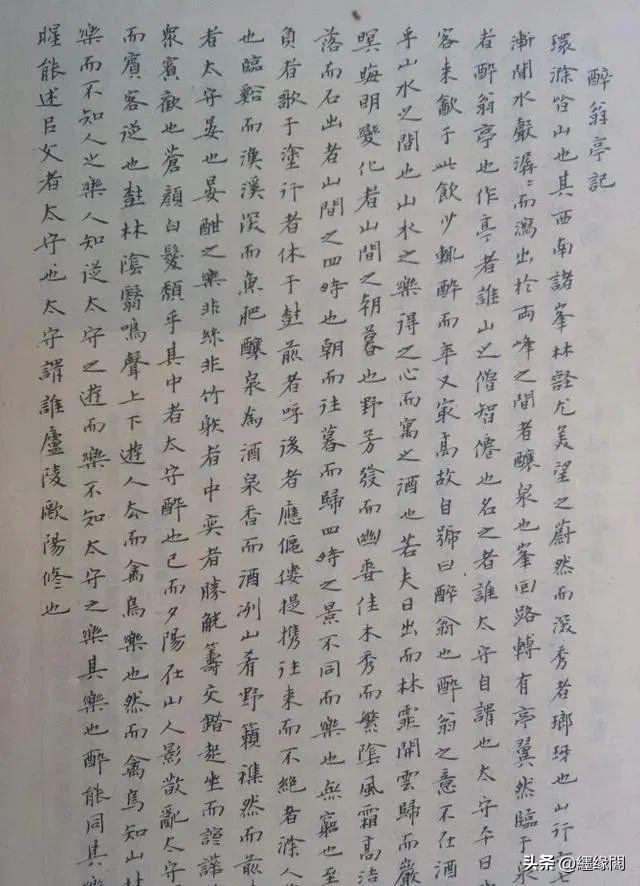 醉翁亭記
環滁皆山也其西南諸峯林壑尤美望之蔚然而深秀者瑯琊也山行
漸聞水聲潺〻而瀉出於兩峰之間者釀泉也峯回路轉有亭翼然臨于泉
者醉翁亭也作亭者誰山之僧智僊也名之者誰太守自謂也太守
客来飲于此飲少輒醉而年又最高故自號曰醉翁也醉翁之意不在酒
乎山水之間也山水之樂得之心而寓之酒也若夫日出而林霏開雲歸而巖
暝晦明變化者山間之朝暮也野芳發而幽香佳木秀而繁陰風霜高潔
落而石出者山間之四時也朝而往暮而歸四時之景不同而樂也無窮也至
負者歌于塗行者休于樹前者呼後者應傴僂提携往来而不絶者滁人
也臨谿而漁溪深而魚肥釀泉為酒泉香而酒洌山肴野蔌襍然而前
者太守宴也宴酣之樂非絲非竹射者中奕者勝觥籌交錯起坐而諠譁
衆賓歡也蒼顔白髮頽乎其中者太守醉也已而夕陽在山人影散亂太守
而賓客從也樹林陰翳鳴聲上下遊人去而禽鳥樂也然而禽鳥知山林
樂而不知人之樂人知從太守之遊而樂不知太守之樂其樂也醉能同其樂
醒能述以文者太守也太守謂誰廬陵歐陽修也
头条 @纆缘閣